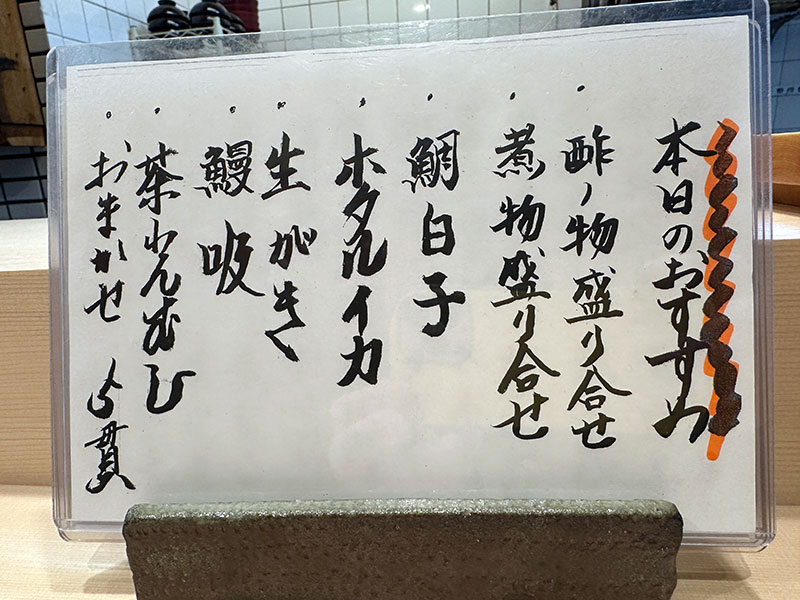 本日のおすすめ
酢ノ物盛り合せ
煮物盛り合せ
鯛白子
ホタルイカ
生がき
鰻吸
茶わんむし
おまかせ 5貫